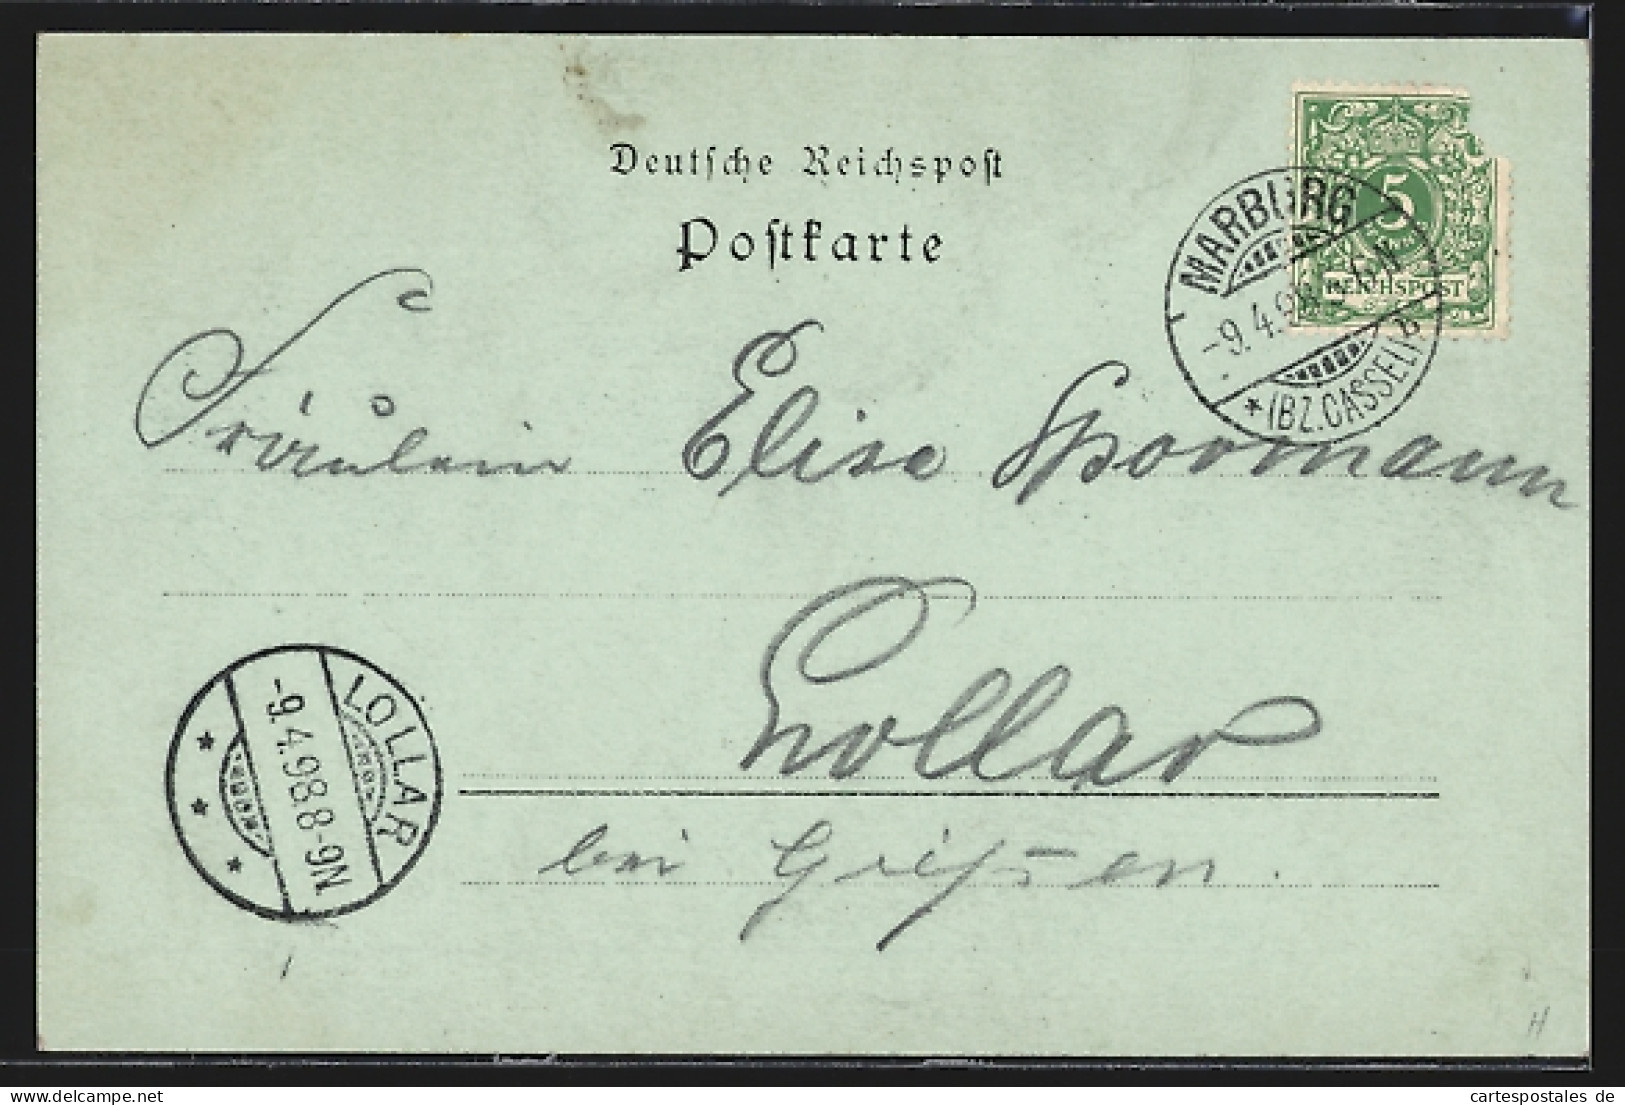 Deutsche Reichspost
Postkarte
5
REICHSPOST
MARBURG
-9.4.98. 6N
* (BZ.CASSEL)
Fräulein Elise Spormann
Lollar
bei Gießen.
LOLLAR
-9.4.98.8-9N
* * *
H
www.hippostcard.com
cartespostales de